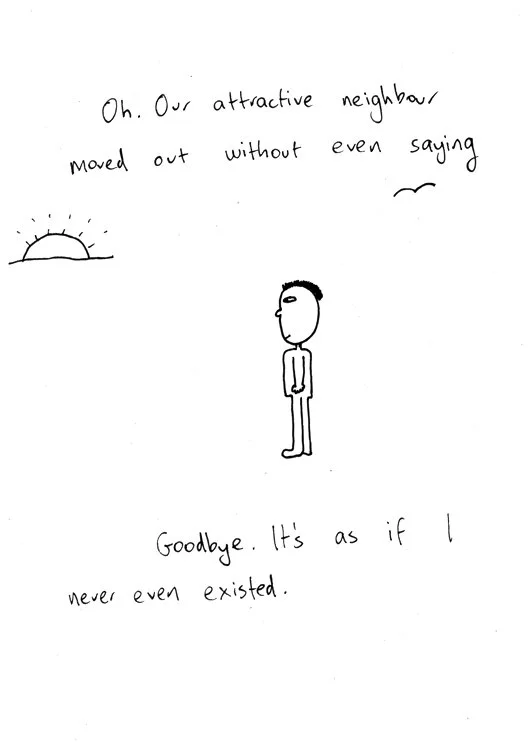 Oh. Our attractive neighbour
moved out without even saying
Goodbye. It's as if I
never even existed.